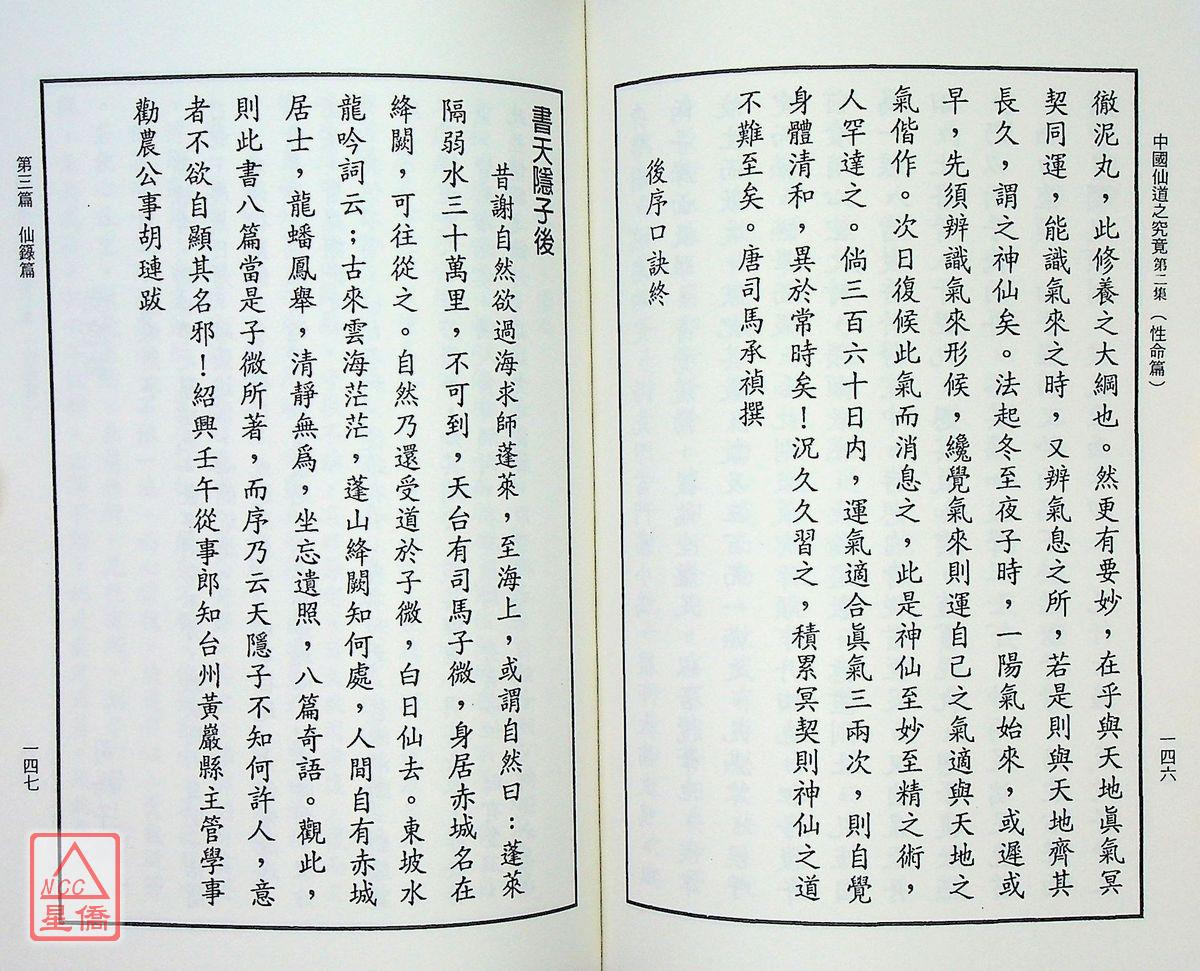 中國仙道之究竟 第二集（性命篇）
一四六
徹泥丸，此修養之大綱也。然更有要妙，在乎與天地眞氣冥
契同運，能識氣來之時，又辨氣息之所，若是則與天地齊其
長久，謂之神仙矣。法起冬至夜子時，一陽氣始來，或遲或
早，先須辨識氣來形候，纔覺氣來則運自己之氣適與天地之
氣偕作。次日復候此氣而消息之，此是神仙至妙至精之術，
人罕達之。倘三百六十日內，運氣適合眞氣三兩次，則自覺
身體清和，異於常時矣！況久久習之，積累冥契則神仙之道
不難至矣。唐司馬承禎撰
後序口訣終
書天隱子後
昔謝自然欲過海求師蓬萊，至海上，或謂自然曰：蓬萊
隔弱水三十萬里，不可到，天台有司馬子微，身居赤城名在
絳闕，可往從之。自然乃還受道於子微，白日仙去。東坡水
龍吟詞云；古來雲海茫茫，蓬山絳闕知何處，人間自有赤城
居士，龍蟠鳳舉，清靜無爲，坐忘遺照，八篇奇語。觀此，
則此書八篇當是子微所著，而序乃云天隱子不知何許人，意
者不欲自顯其名邪！紹興壬午從事郎知台州黃巖縣主管學事
勸農公事胡璉跋
第三篇 仙籙篇
一四七
NCC
星僑